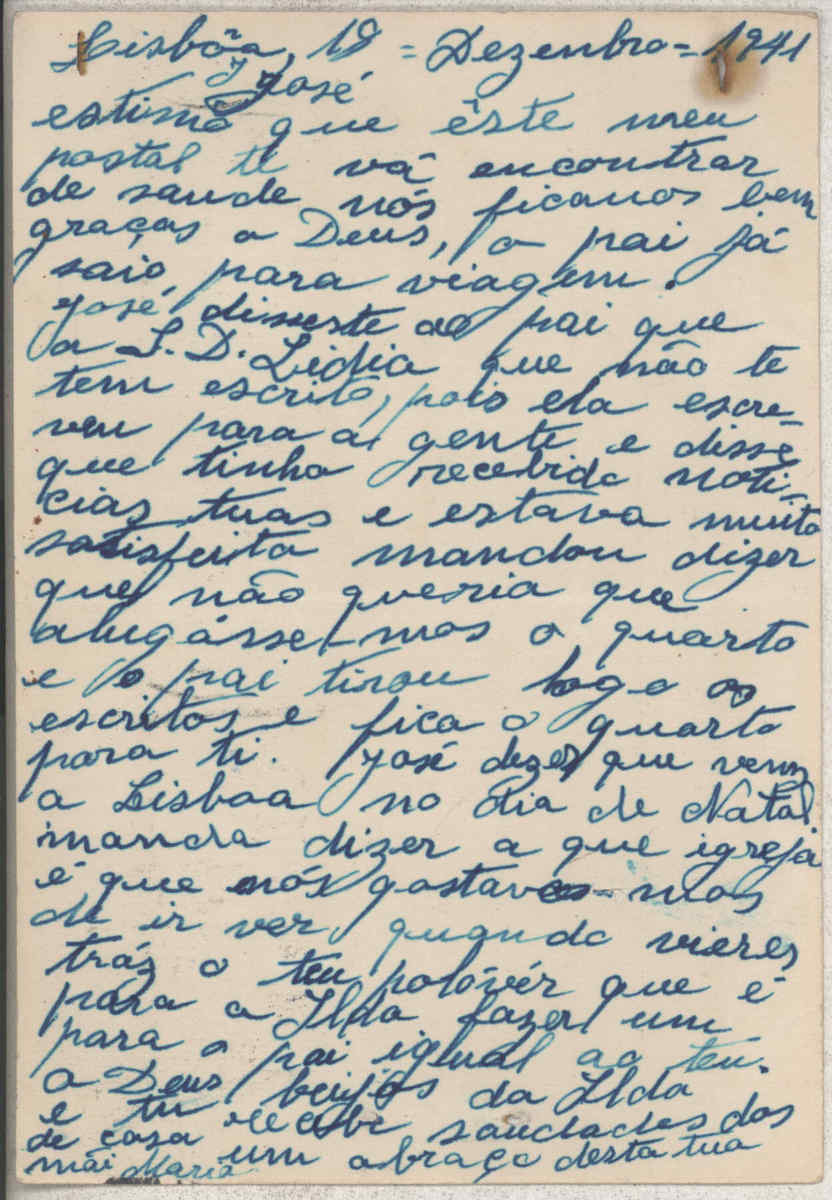 Lisbôa, 19 = Dezembro = 1941
José
estimo que êste meu
postal te vá encontrar
de saude nós ficamos bem
graças a Deus, o pai já
saio, para viagem.
José disseste ao pai que
a S. D. Lidia que não te
tem escrito, pois ela escre-
veu para a gente e disse
que tinha recebido noti-
cias tuas e estava muito
satisfeita mandou dizer
que não queria que
alugásse-mos o quarto
e o pai tirou logo os
escritos e fica o quarto
para ti. José dizes que vens
a Lisboa no dia de Natal
manda dizer a que igreja
é que nós gostava-mos
de ir ver, quando vieres
tráz o teu polóvér que é
para a Ilda fazer um
para o pai igual ao teu.
a Deus beijos da Ilda
e tu recebe saudades dos
de casa um abraço desta tua
mãi Maria